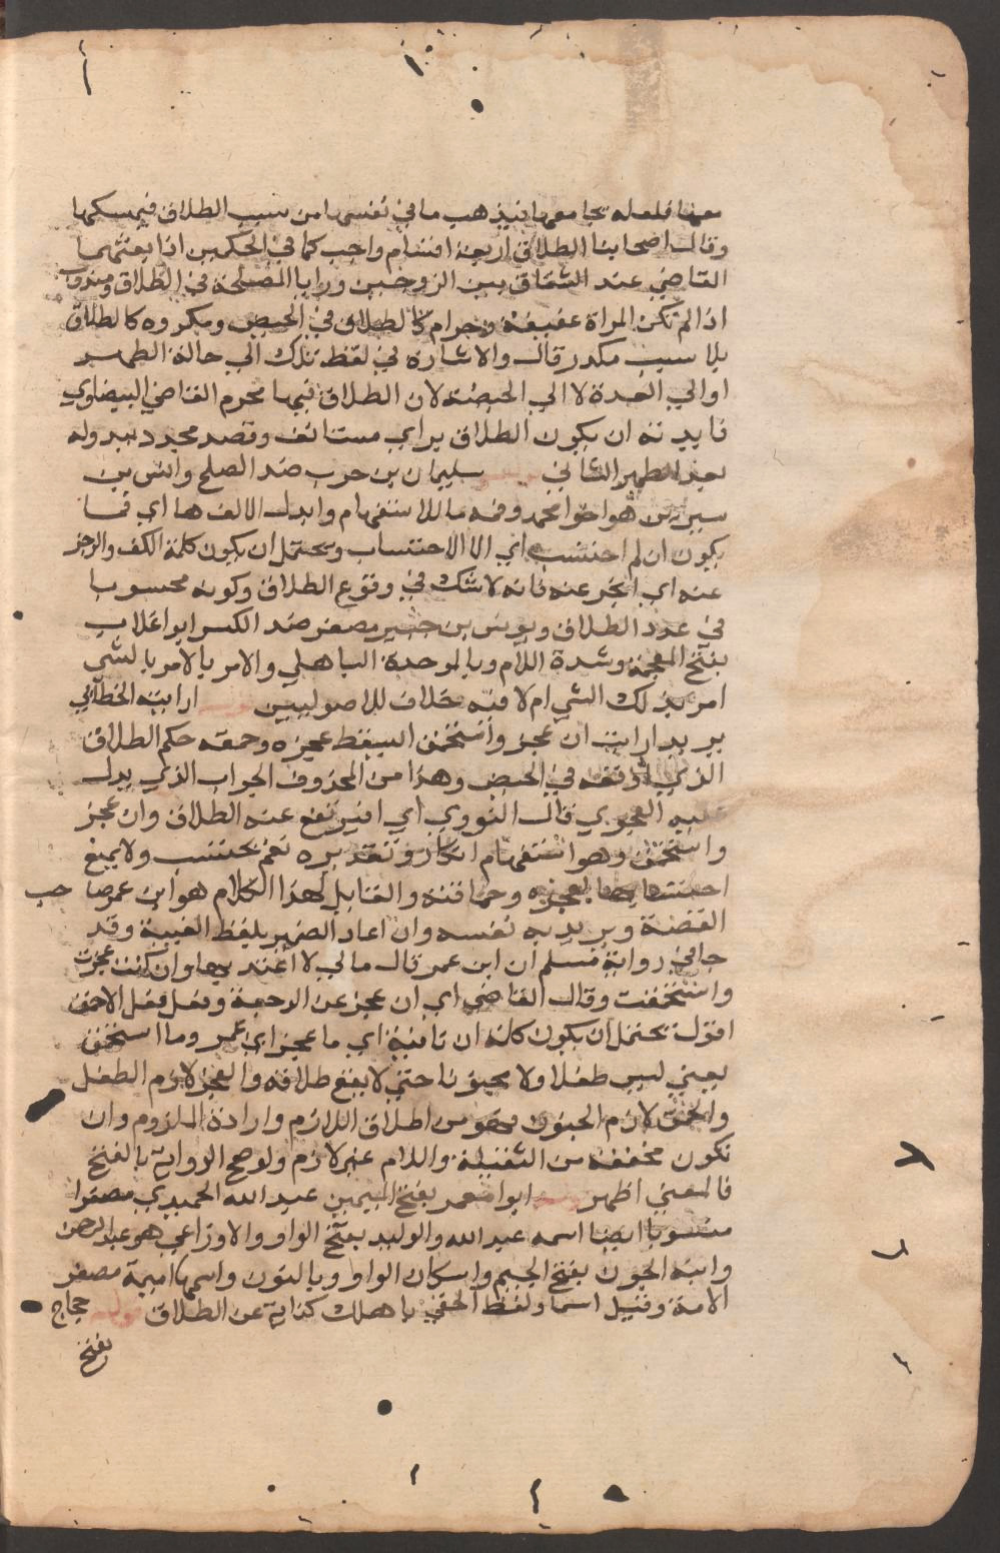 معها فلعله يجامعها فيذهب ما في نفسها من سبب الطلاق فيمسكها
وقال اصحابنا الطلاق اربعة اقسام واجب كما في الحكمين اذا بعثهما
القاضي عند الشقاق بين الزوجين ورايا المصلحة في الطلاق ومندوب
اذا لم تكن المراة عفيفة وحرام كالطلاق في الحيض ومكروه كالطلاق
بلا سبب مكدر قال والاشارة في لفظ تلك الي حالة الطهر
او الي العدة لا الي الحيضة لان الطلاق فيها محرم القاضي البيضاوي
فايدته ان يكون الطلاق براي مستانف وقصد مجدد يبدو له
بعد الطهر الثاني سليمان بن حرب ضد الصلح وانس بن
سيرين هو اخو محمد وفمه ما للاستفهام وابدل الالف ها اي فما
يكون ان لم احتسب اي الا الاحتساب ويحتمل ان يكون كلمة الكف والزجر
عنه اي انجر عنه فانه لا شك في وقوع الطلاق وكونه محسوبا
في عدد الطلاق ويونس بن جبير مصغر ضد الكسر ابو اغلاب
بفتح المعجمة وشدة اللام وبالموحدة الباهلي والامر بالامر بالشي
امر بذلك الشي ام لا فيه خلاف للاصوليين ارايته الخطابي
يريد ارايت ان عجز واستحمق ايسقط عجزه وحمقه حكم الطلاق
الذي اوقعه في الحيض وهذا من المحذوف الجواب الذي يدل
عليه الفحوي قال النووي اي افيرتفع عنه الطلاق وان عجز
واستحمق وهو استفهام انكار وتقديره نعم يحتسب ولا يمنع
احتسابها لعجزه وحماقته والقايل لهذا الكلام هو ابن عمر صاحب
القصة ويريد به نفسه وان اعاد الضمير بلفظ الغيبة وقد
جا في رواية مسلم ان ابن عمر قال مالي لا اعتد بها وان كنت عجزت
واستحمقت وقال القاضي اي ان عجز عن الرجعة وفعل فعل الاحمق
اقول يحتمل ان يكون كلمة ان نافية اي ما عجز ابن عمر وما استحمق
يعني ليس طفلا ولا مجنونا حتي لا يقع طلاقه والعجز لازم الطفل
والحمق لازم الجنون فهو من اطلاق اللازم وارادة الملزوم وان
تكون مخففة من الثقيلة واللام غير لازم ولو صح الرواية بالفتح
فالمعني اظهر ابو معمر بفتح الميمين عبد الله الحميدي مصغرا
منسوبا ايضا اسمه عبد الله والوليد بفتح الواو والاوزاعي هو عبد الرحمن
وابنة الجون بفتح الجيم واسكان الواو وبالنون واسمها اميمة مصغر
الامة وقيل اسما ولفظ الحقي باهلك كناية عن الطلاق قوله حجاج
بفتح